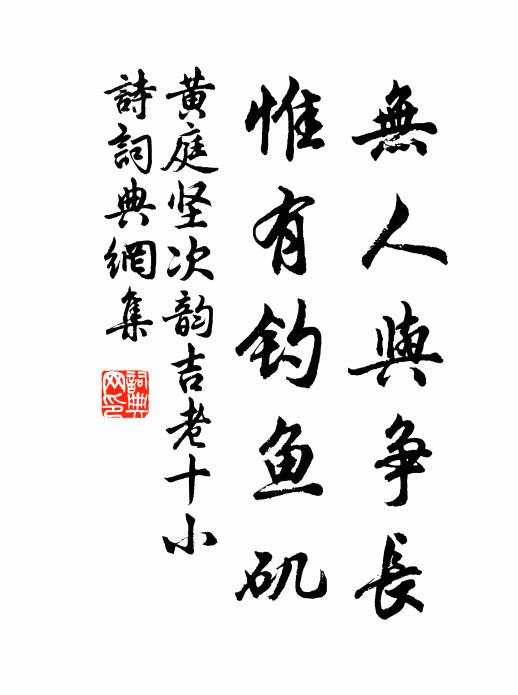 無人與争長
惟有钓鱼矶
黄庭坚次韵吉老十小
詩詞典網集
詞典
网印